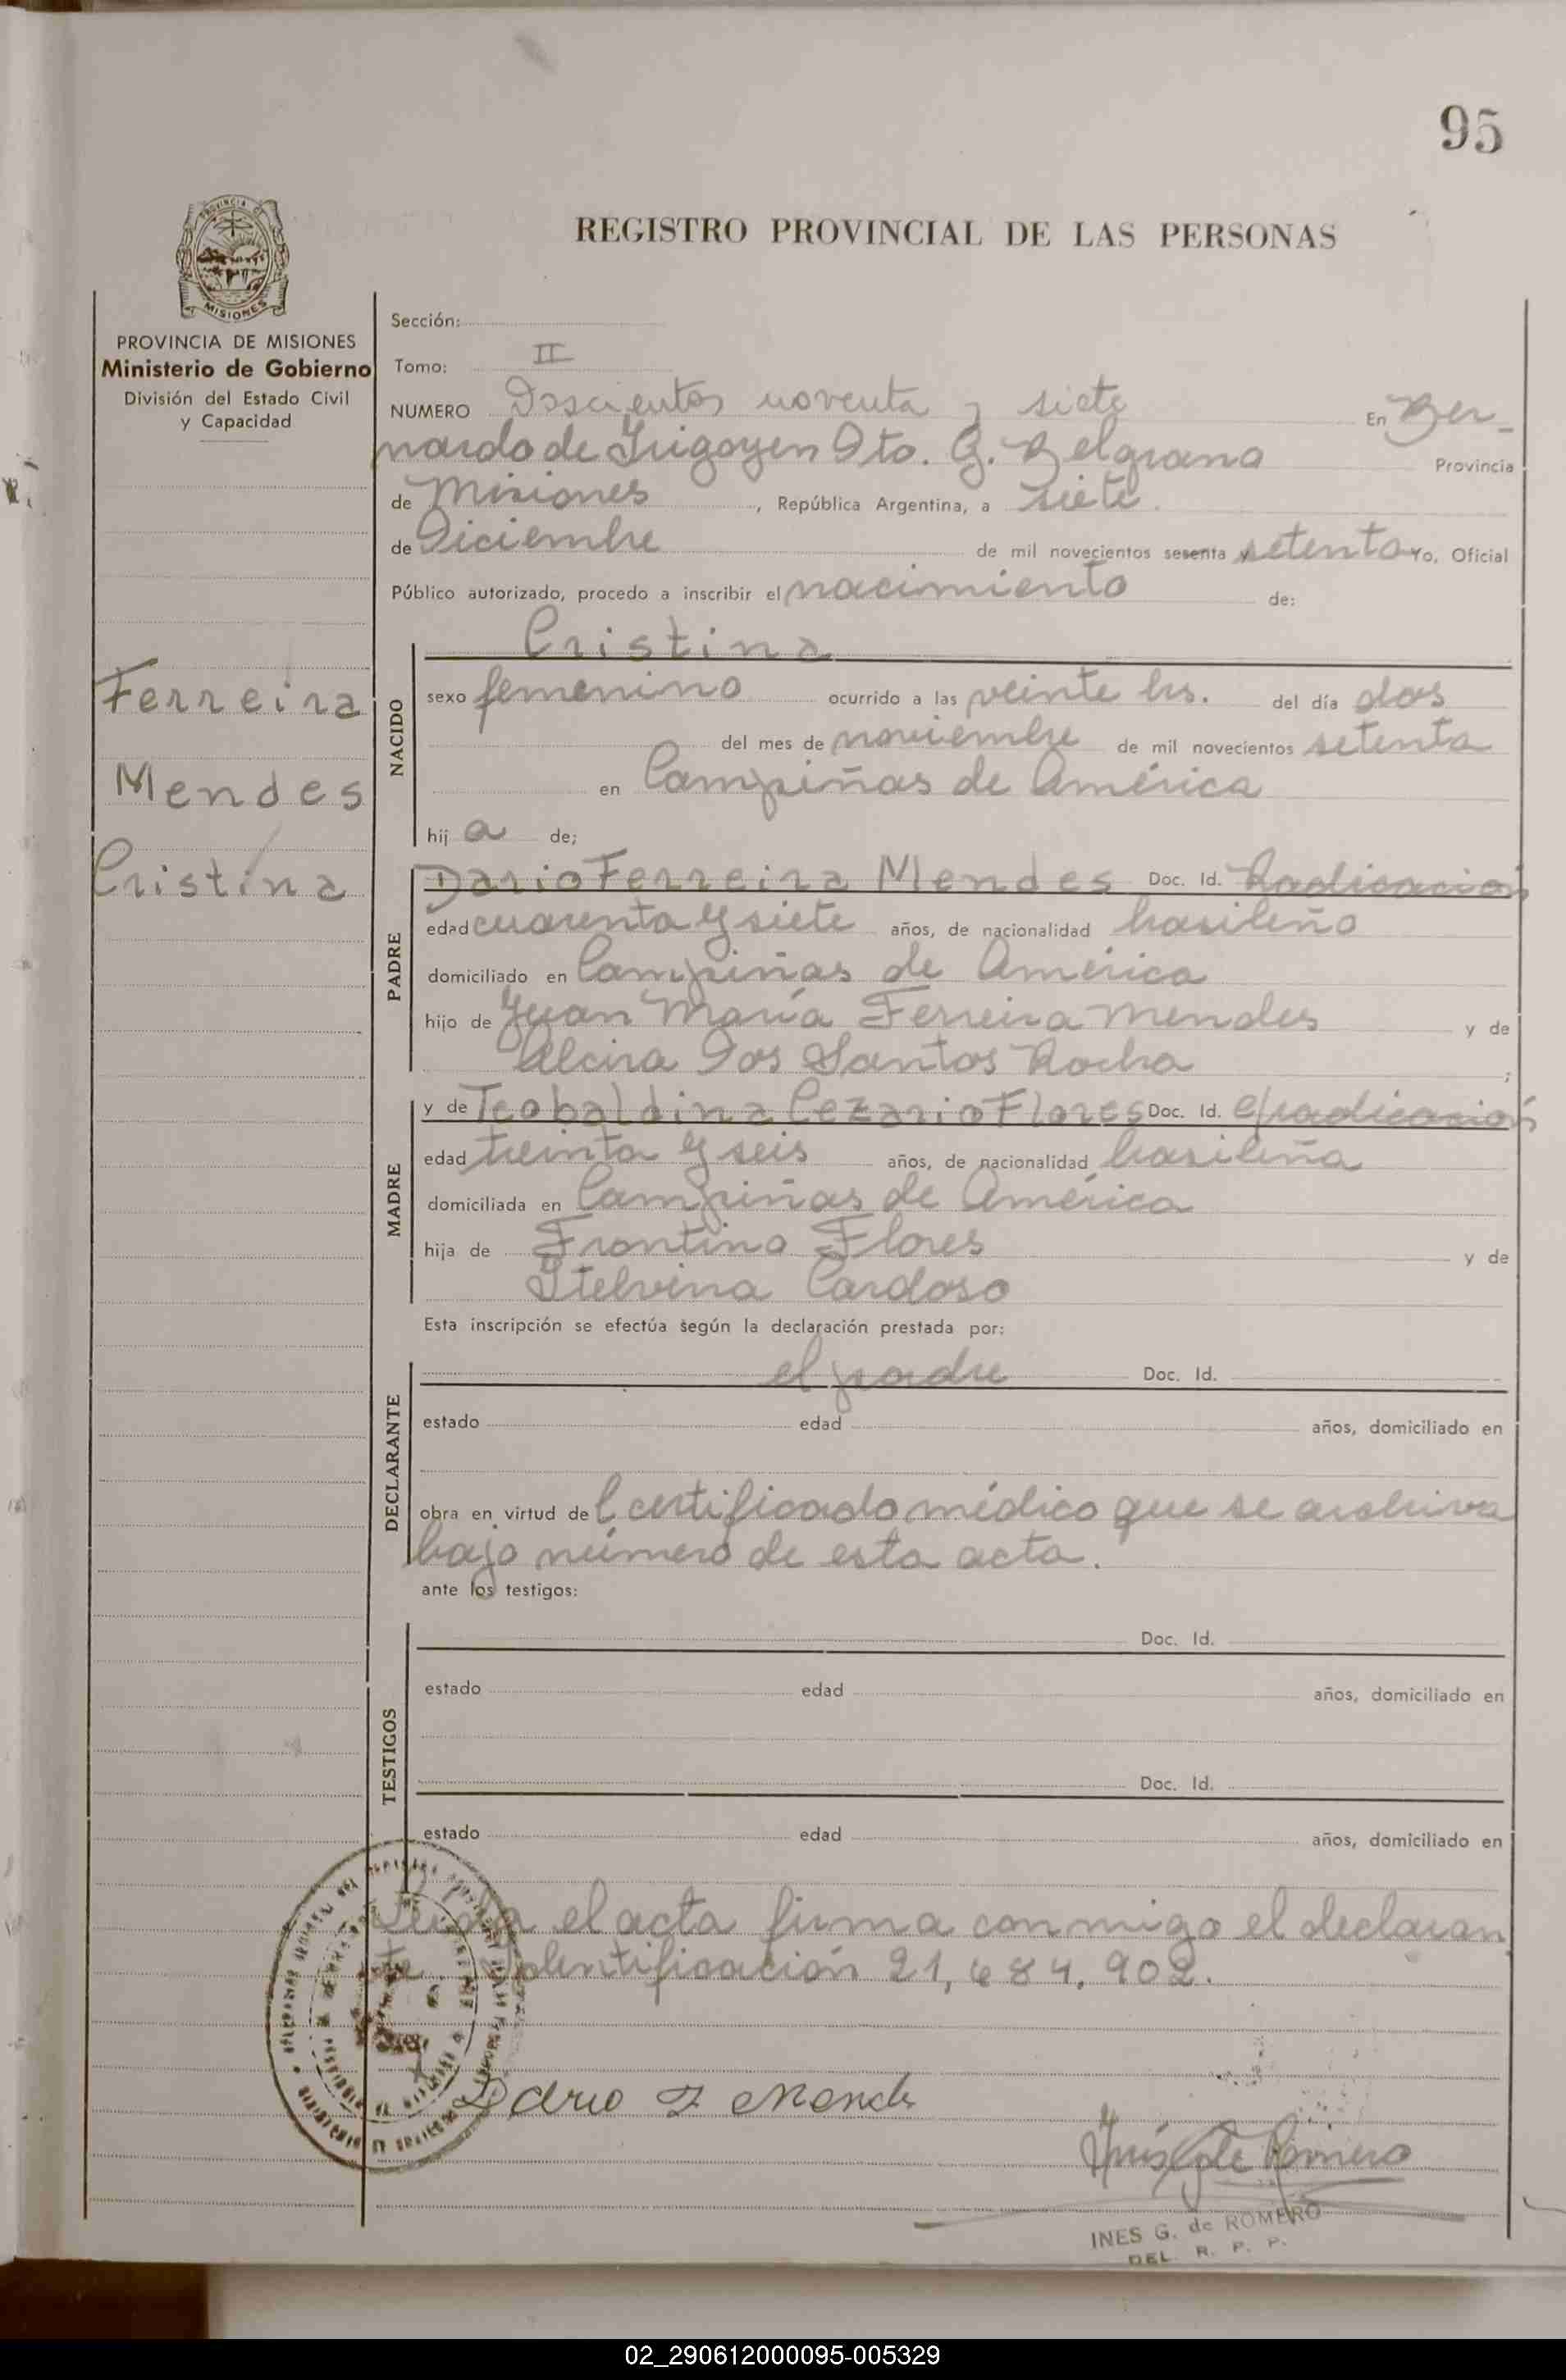 95
REGISTRO PROVINCIAL DE LAS PERSONAS
PROVINCIA DE
MISIONES
PROVINCIA DE MISIONES
Ministerio de Gobierno
División del Estado Civil
y Capacidad
Ferreira
Mendes
Cristina
Sección:
Tomo: II
NUMERO Doscientos noventa y siete En Ber-
nardo de Irigoyen Dto. G. Belgrano Provincia
de Misiones, República Argentina, a siete
de Diciembre de mil novecientos sesenta y setenta Yo, Oficial
Público autorizado, procedo a inscribir el nacimiento de:
Cristina
NACIDO
sexo femenino ocurrido a las veinte hs. del día dos
del mes de noviembre de mil novecientos setenta
en Campiñas de América
hij a de;
PADRE
Dario Ferreira Mendes Doc. Id. Radicación
edad cuarenta y siete años, de nacionalidad brasileño
domiciliado en Campiñas de América
hijo de Juan María Ferreira Mendes y de
Alcira Dos Santos Rocha ;
MADRE
y de Teobaldina Cezario Flores Doc. Id. c/radicación
edad treinta y seis años, de nacionalidad brasileña
domiciliada en Campiñas de América
hija de Frontino Flores y de
Itelvina Cardoso
Esta inscripción se efectúa según la declaración prestada por:
DECLARANTE
el padre Doc. Id.
estado edad años, domiciliado en
obra en virtud de l certificado médico que se archiva
bajo número de esta acta.
ante los testigos:
TESTIGOS
Doc. Id.
estado edad años, domiciliado en
Doc. Id.
estado edad años, domiciliado en
Leida el acta firma conmigo el declaran
te. Identificación 21,684.902.
Dario F Mendes
Inés G de Romero
INES G. de ROMERO
DEL. R. P. P.
02_290612000095-005329